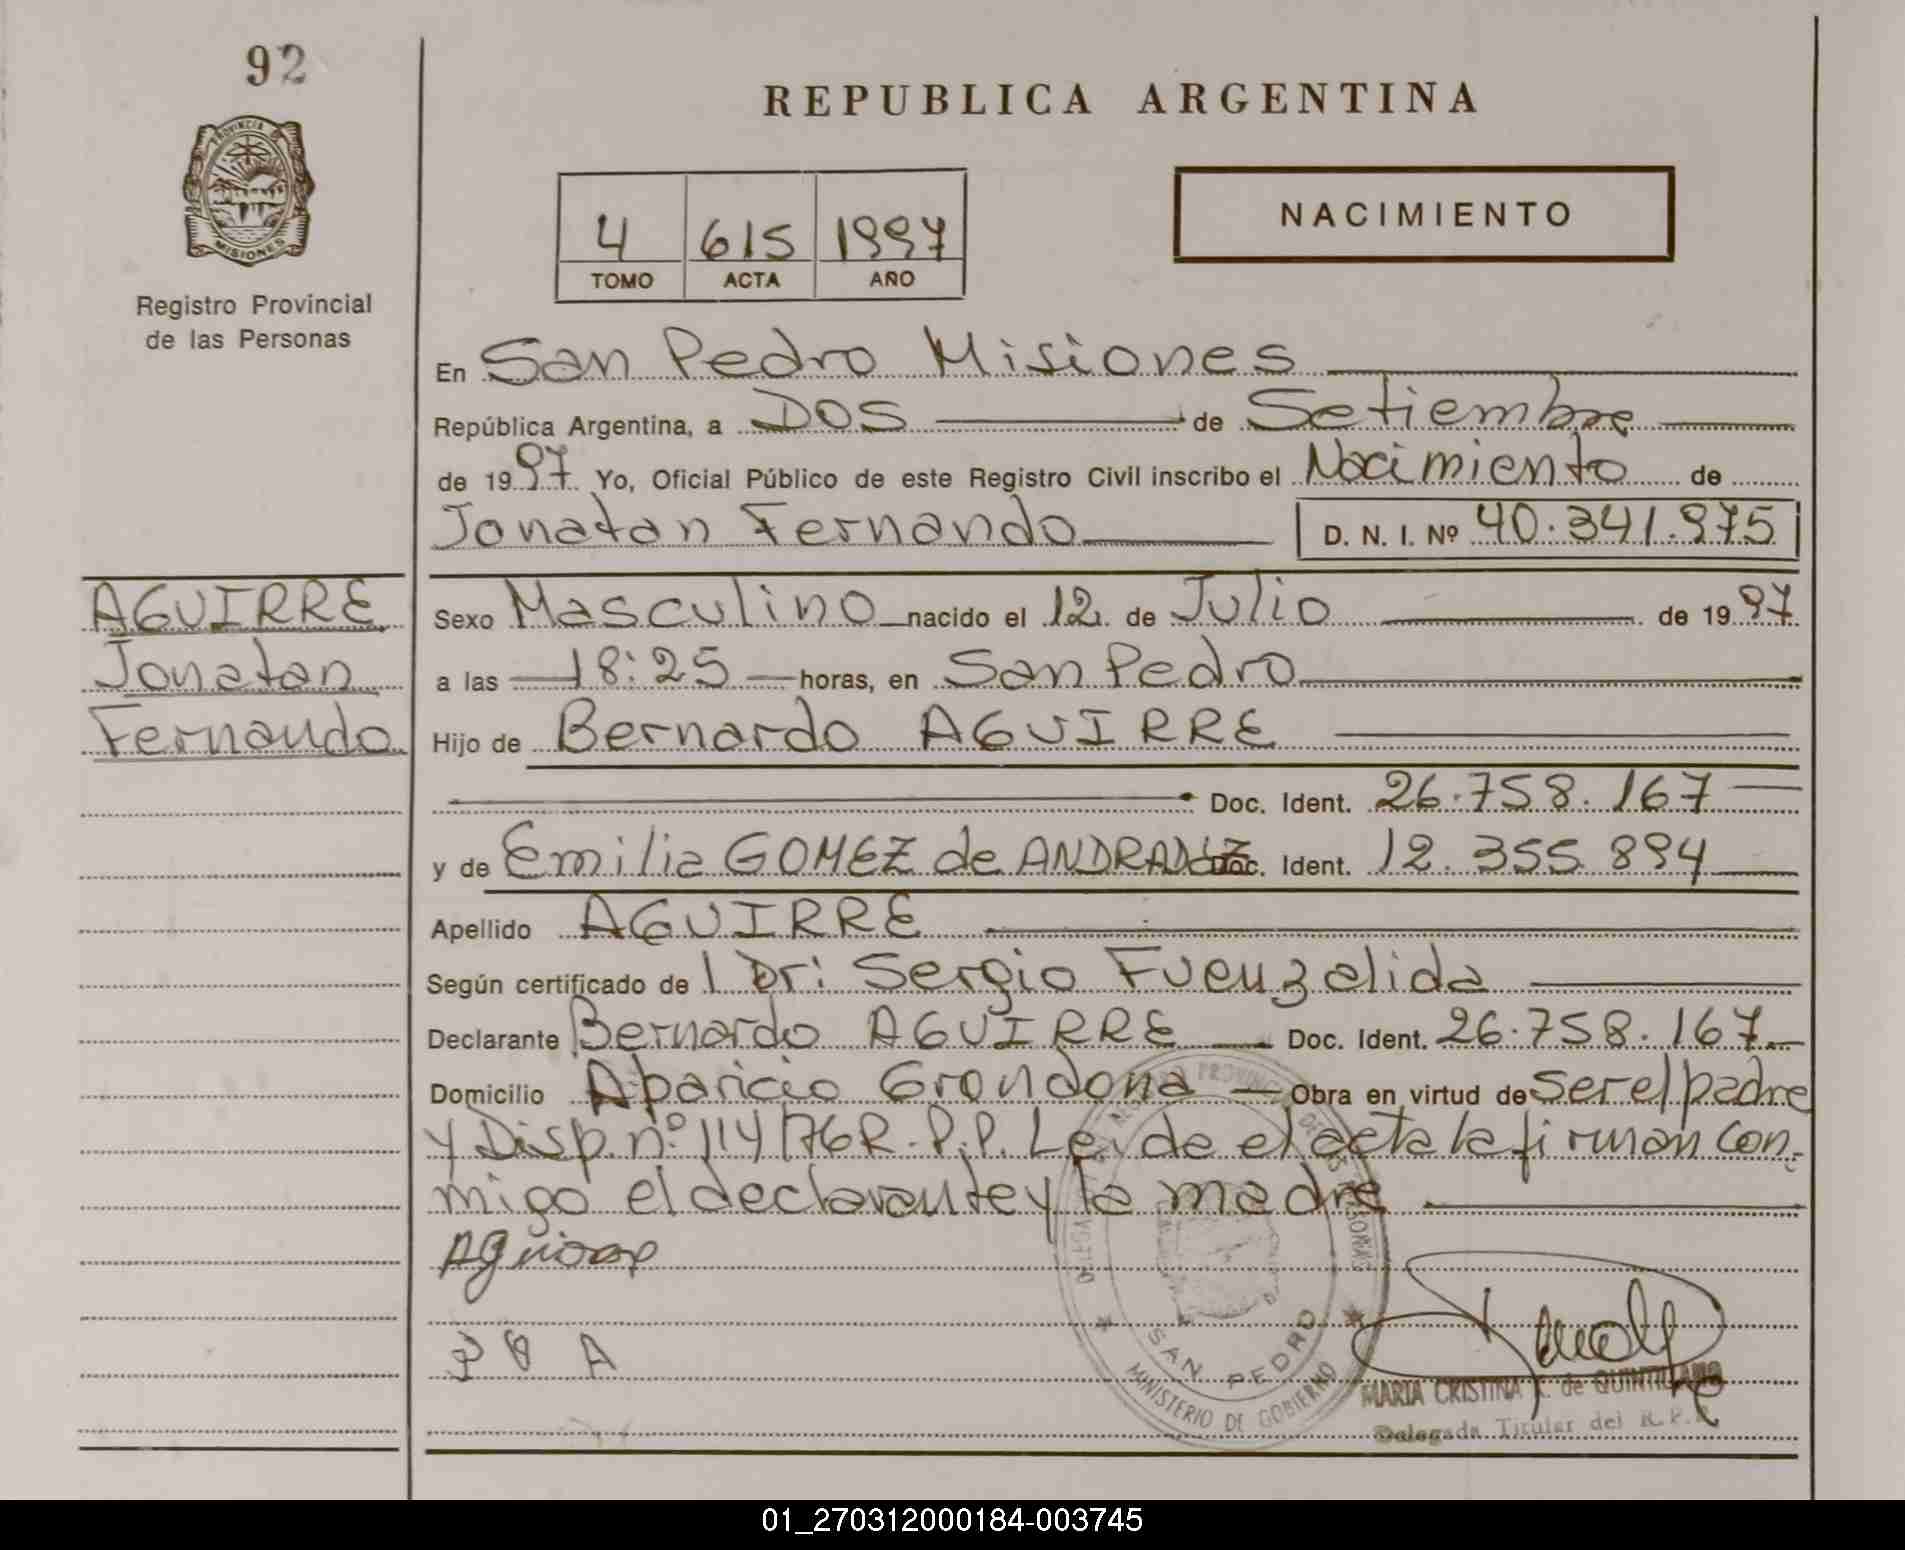 92
PROVINCIA DE
MISIONES
Registro Provincial
de las Personas
REPUBLICA ARGENTINA
4 615 1997
TOMO ACTA AÑO
NACIMIENTO
En San Pedro Misiones
República Argentina, a DOS de Setiembre
de 1997 Yo, Oficial Público de este Registro Civil inscribo el Nacimiento de
Jonatan Fernando D. N. I. Nº 40.341.975
AGUIRRE
Jonatan
Fernando
Sexo Masculino nacido el 12 de Julio de 1997
a las 18:25 horas, en San Pedro
Hijo de Bernardo AGUIRRE
Doc. Ident. 26.758.167
y de Emilia GOMEZ de ANDRADEZ Doc. Ident. 12.355.894
Apellido AGUIRRE
Según certificado de l Dr: Sergio Fuenzalida
Declarante Bernardo AGUIRRE Doc. Ident. 26.758.167
Domicilio Aparicio Grondona Obra en virtud de ser el padre
y Disp. nº 114/76 R.P.P. Leida el acta la firman con
migo el declarante y la madre
SAN PEDRO
MINISTERIO DE GOBIERNO
MARIA CRISTINA K. de QUINTILLANO
Delegada Titular del R.P.P.
01_270312000184-003745